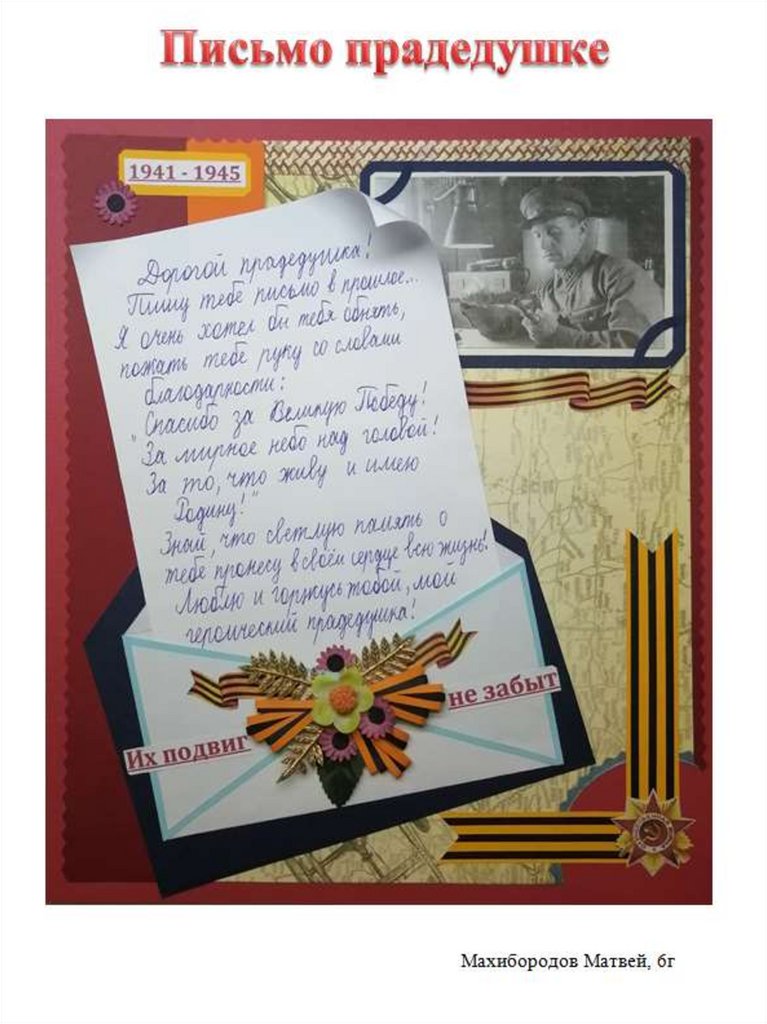 Письмо прадедушке
1941 - 1945
Дорогой прадедушка!
Пишу тебе письмо в прошлое...
Я очень хотел бы тебя обнять,
пожать тебе руку со словами
благодарности:
"Спасибо за Великую Победу!
За мирное небо над головой!
За то, что живу и имею
Родину!"
Знай, что светлую память о
тебе пронесу в своём сердце всю жизнь!
Люблю и горжусь тобой, мой
героический прадедушка!
Их подвиг
не забыт
Махибородов Матвей, 6г